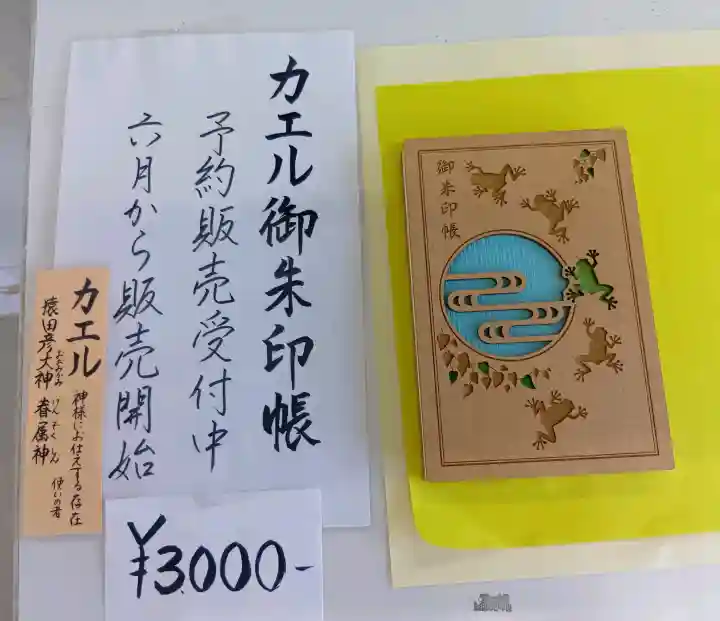 カエル御朱印帳
予約販売受付中
六月から販売開始
カエル
神様にお仕えする存在
猿田彦大神 眷属神 使いの者
おおみかみ けんぞくしん
¥3.000-
御朱印帳